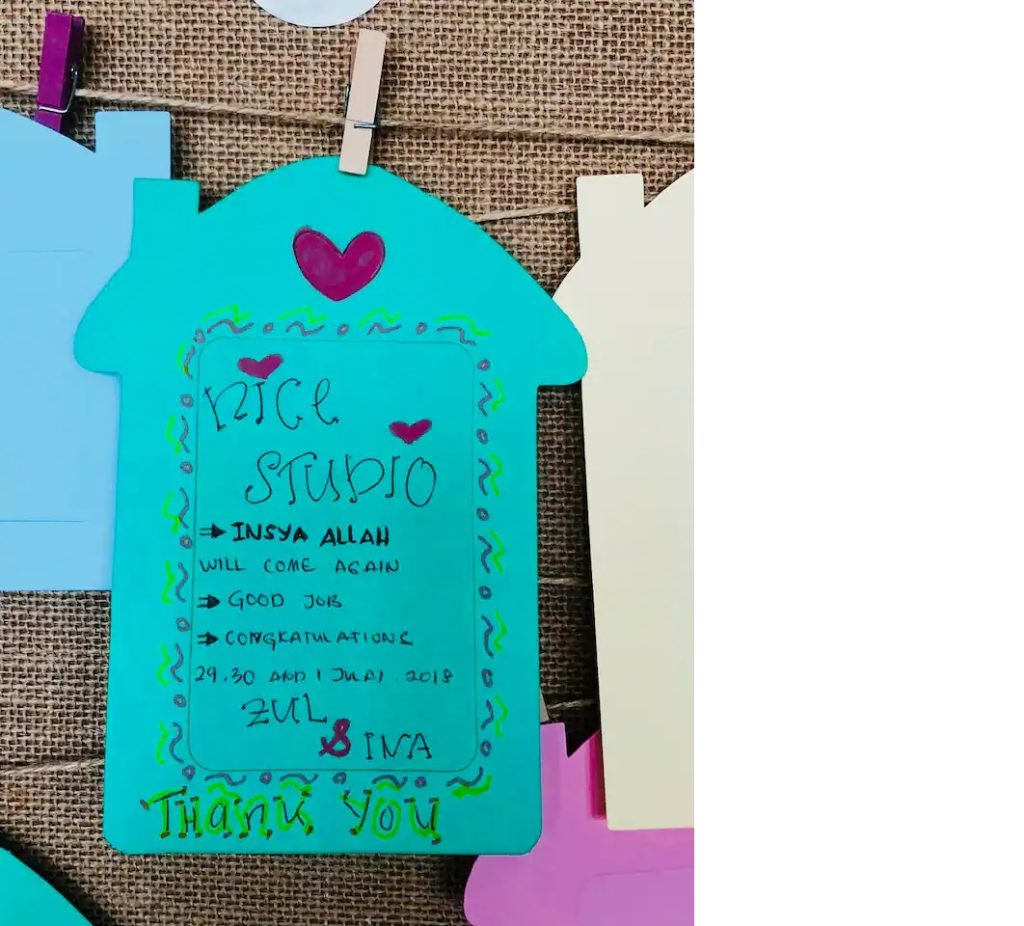 nice
STUDIO
⇒ INSYA ALLAH
WILL COME AGAIN
⇒ GOOD JOB
⇒ CONGRATULATIONS
29,30 AND 1 JULAI . 2018
ZUL
& INA
THANK YOU